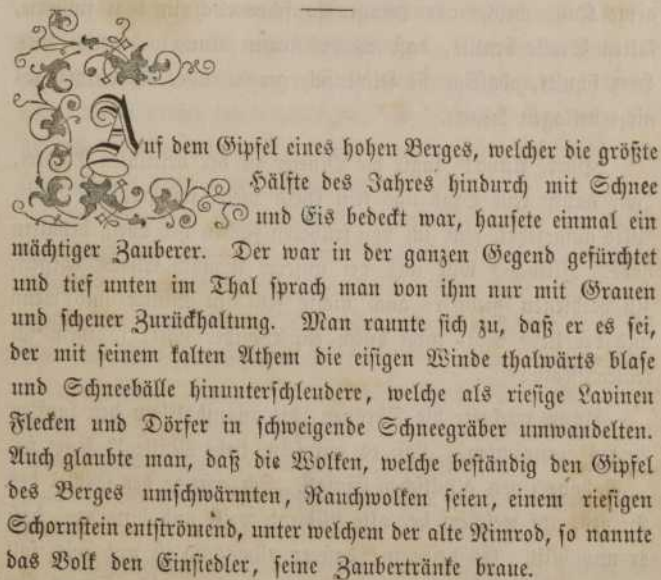 Auf dem Gipfel eines hohen Berges, welcher die größte
Hälfte des Jahres hindurch mit Schnee
und Eis bedeckt war, hausete einmal ein
mächtiger Zauberer. Der war in der ganzen Gegend gefürchtet
und tief unten im Thal sprach man von ihm nur mit Grauen
und scheuer Zurückhaltung. Man raunte sich zu, daß er es sei,
der mit seinem kalten Athem die eisigen Winde thalwärts blase
und Schneebälle hinunterschleudere, welche als riesige Lavinen
Flecken und Dörfer in schweigende Schneegräber umwandelten.
Auch glaubte man, daß die Wolken, welche beständig den Gipfel
des Berges umschwärmten, Rauchwolken seien, einem riesigen
Schornstein entströmend, unter welchem der alte Nimrod, so nannte
das Volk den Einsiedler, seine Zaubertränke braue.